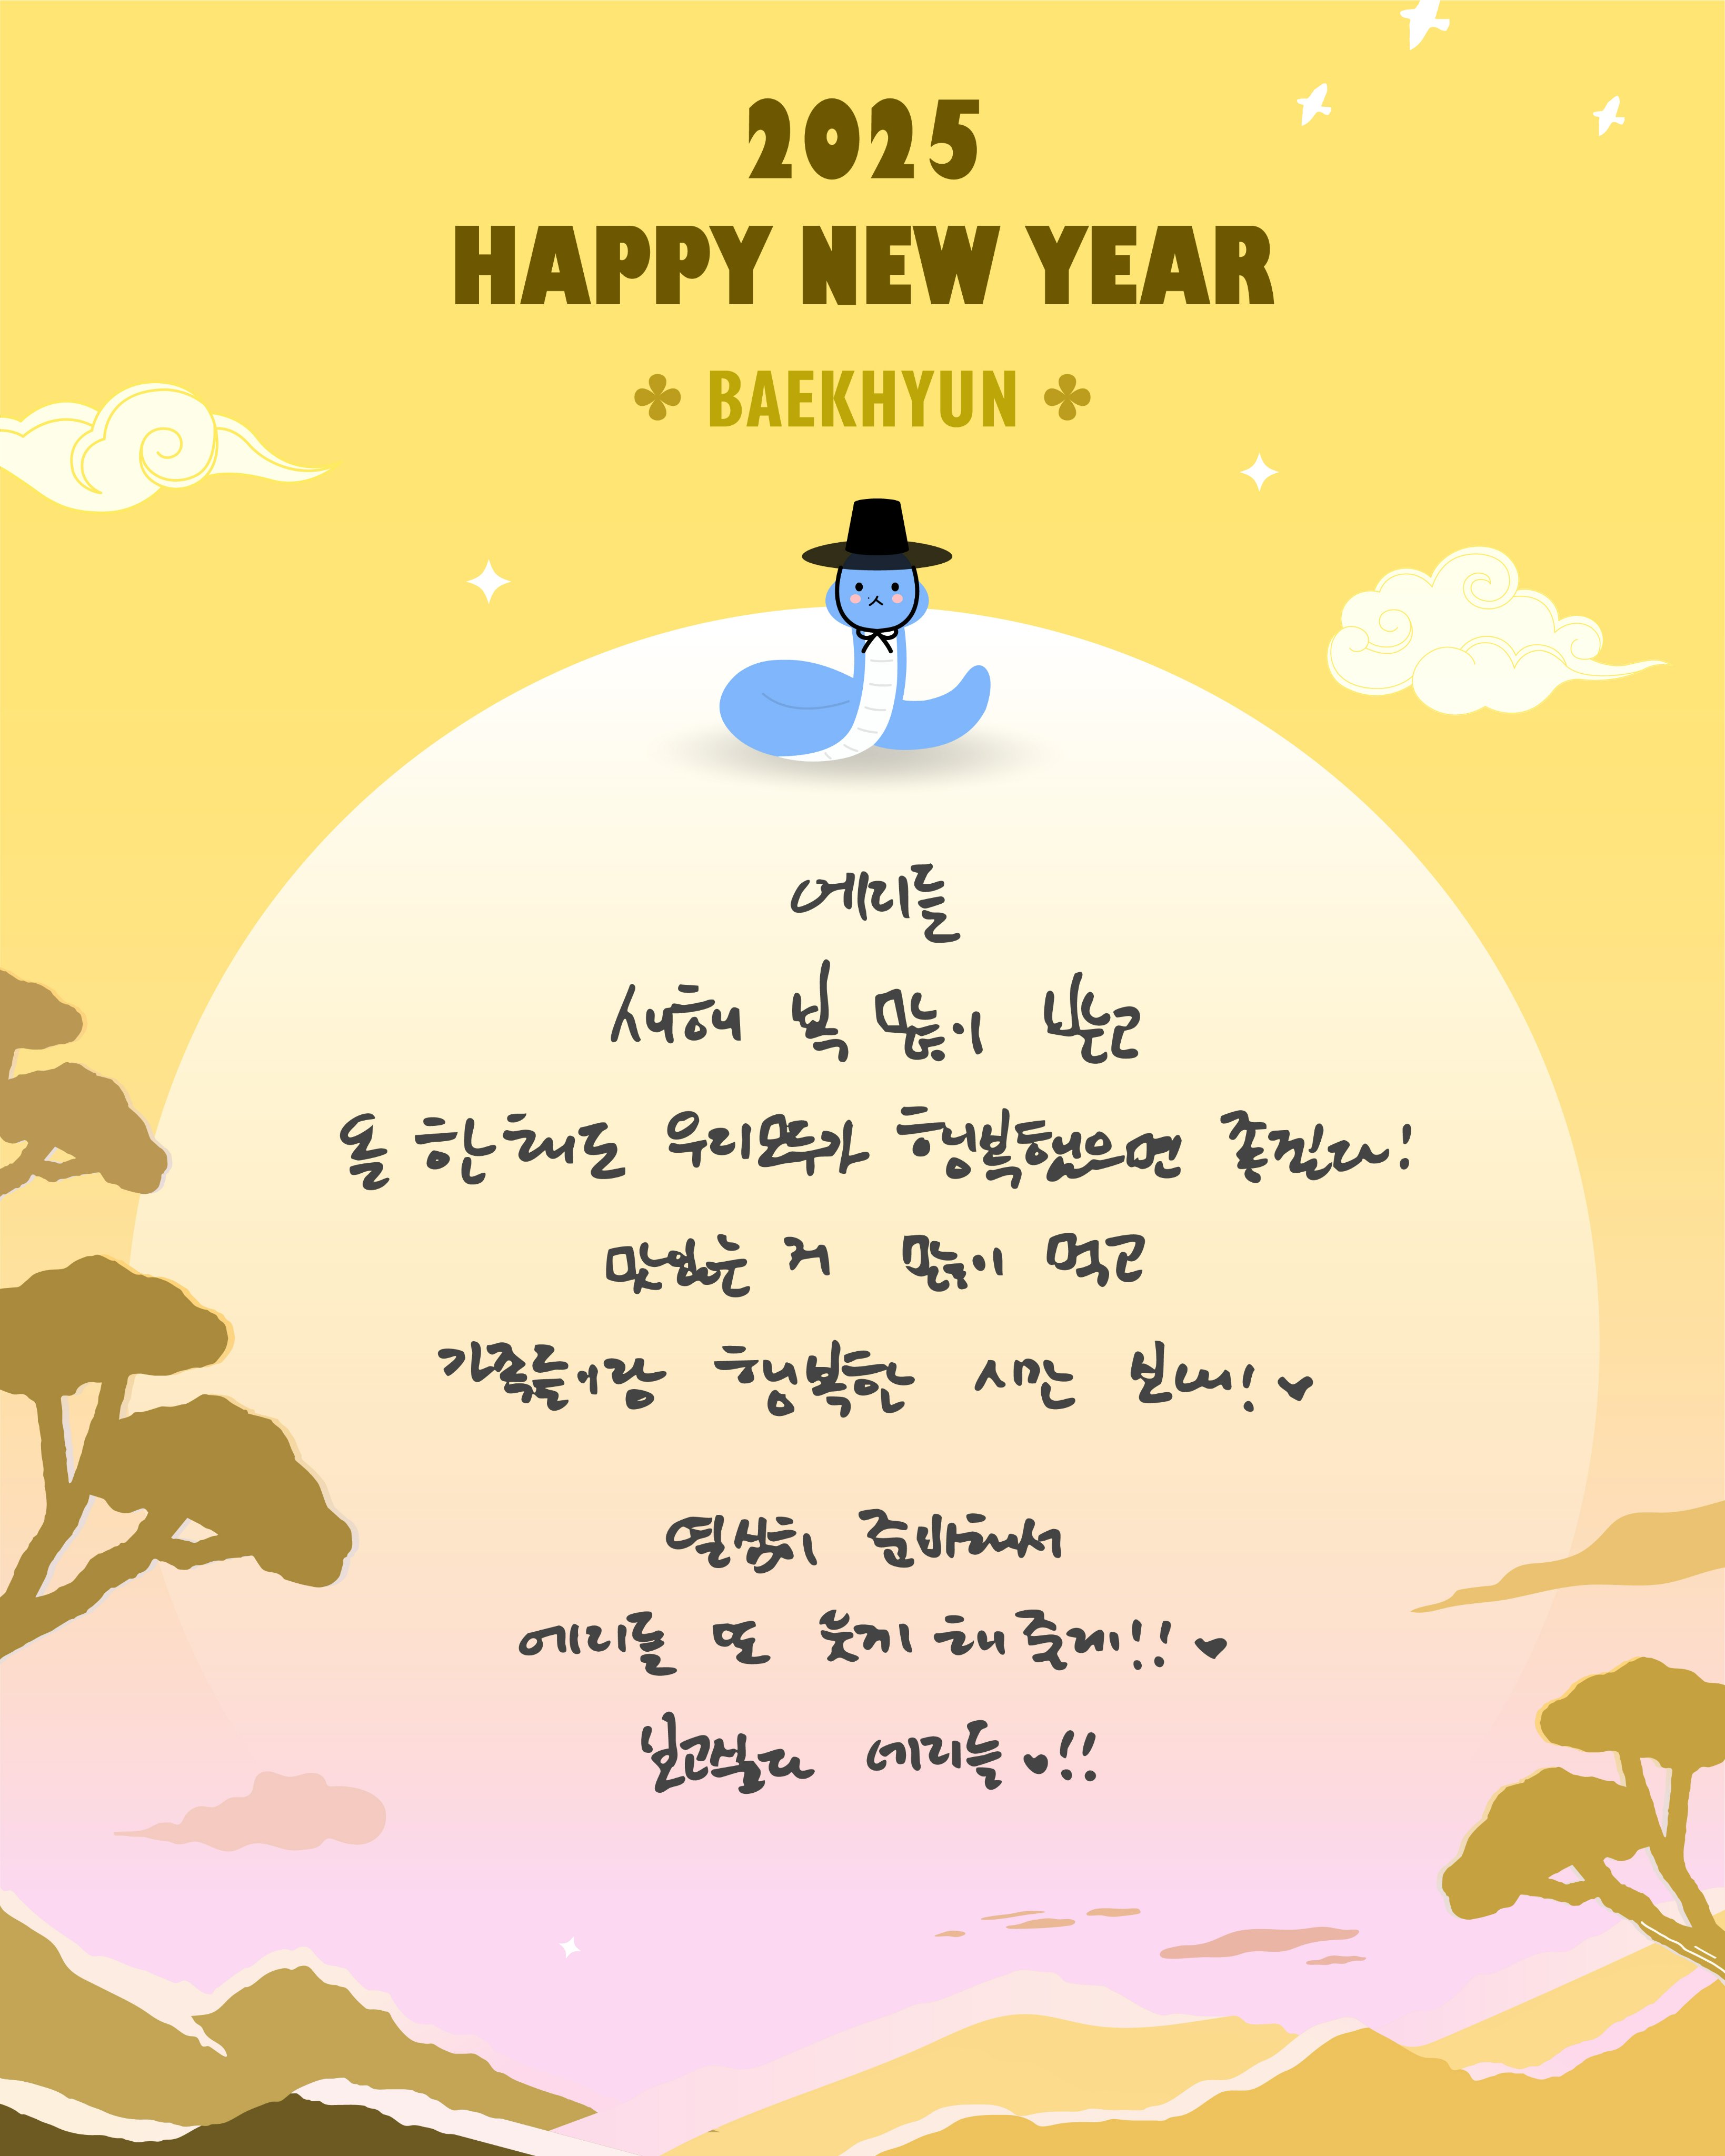 2025
HAPPY NEW YEAR
BAEKHYUN
에리들
새해 복 많이 받는고
올 한 해도 우리 모두가 행복했으면 좋겠다!
맛있는 거 많이 먹고
가족들이랑 행복한 시간 보내!♥
열심히 준비해서
에리들 또 웃게 해줄게!!♥
보고싶다 에리들♥!!